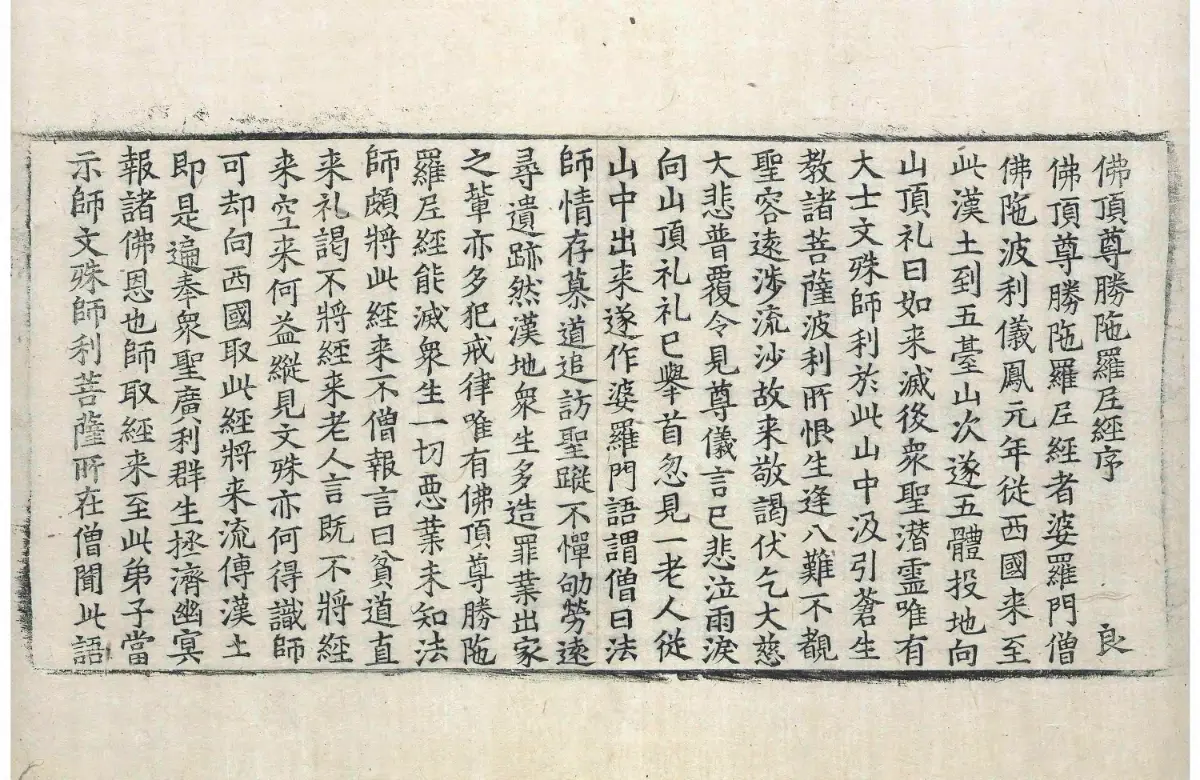 佛頂尊勝陁羅尼經序 良
佛頂尊勝陁羅尼經者婆羅門僧
佛陁波利儀鳳元年從西國来至
此漢土到五臺山次遂五體投地向
山頂礼曰如来滅後衆聖潜霊唯有
大士文殊師利於此山中汲引蒼生
教諸菩薩波利所恨生逢八難不覩
聖容遠涉流沙故来敬謁伏乞大慈
大悲普覆令見尊儀言已悲泣雨淚
向山頂礼礼已舉首忽見一老人從
山中出来遂作婆羅門語謂僧曰法
師情存慕道追訪聖蹤不憚劬勞遠
尋遺跡然漢地衆生多造罪業出家
之輩亦多犯戒律唯有佛頂尊勝陁
羅尼經能滅衆生一切恶業未知法
師頗將此經来不僧報言曰貧道直
来礼謁不將經来老人言既不將經
来空来何益縱見文殊亦何得識師
可却向西國取此經將来流傳漢土
即是遍奉衆聖廣利群生拯濟幽冥
報諸佛恩也師取經来至此弟子當
示師文殊師利菩薩所在僧聞此語